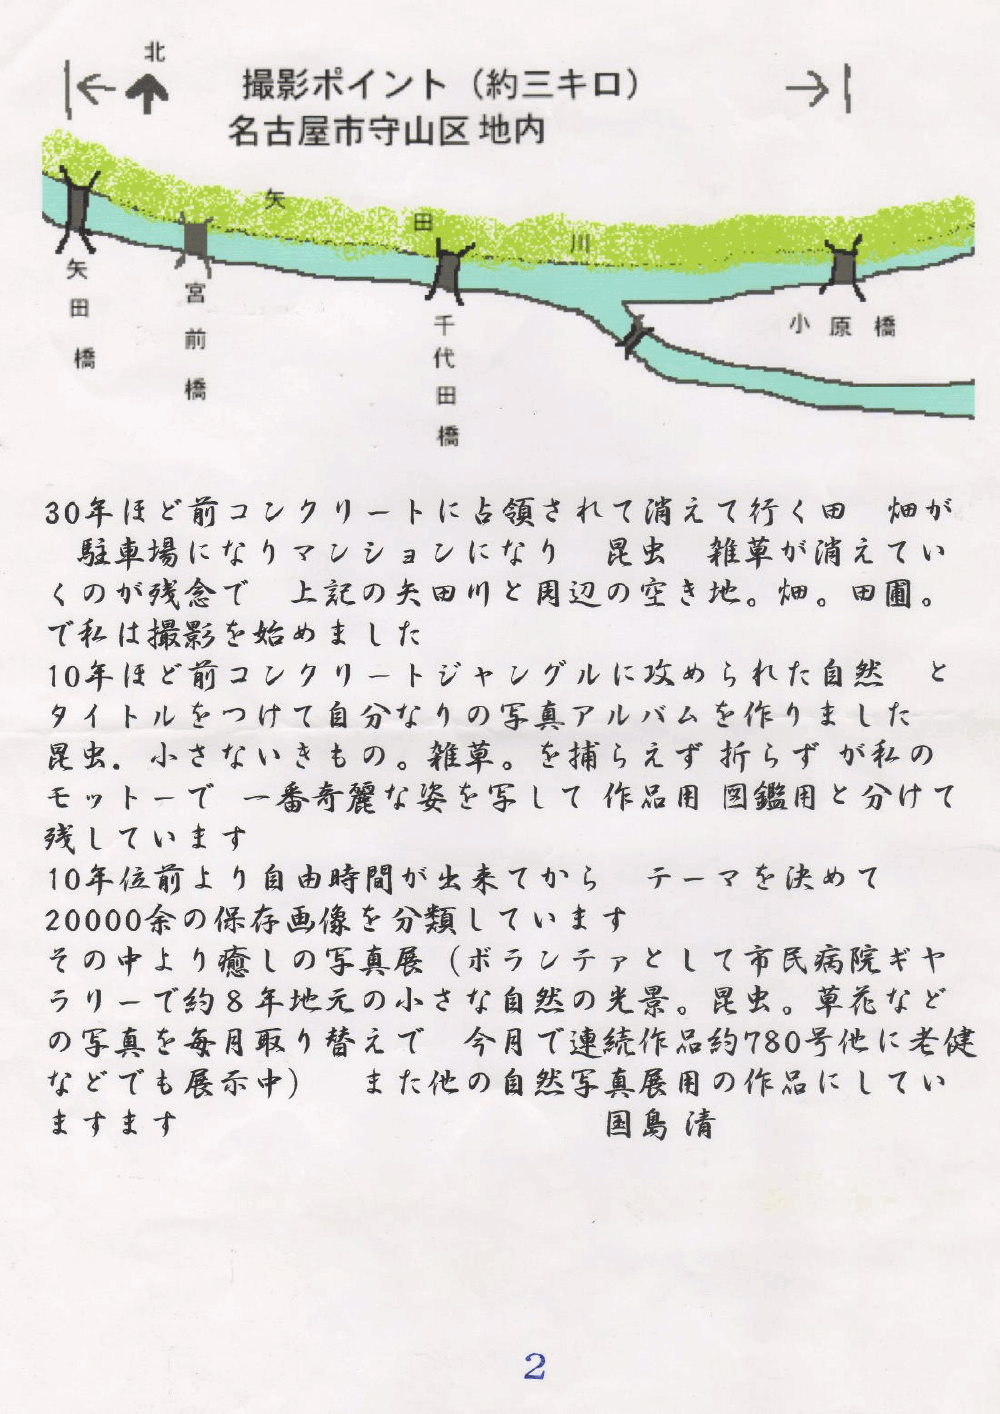 北
撮影ポイント（約三キロ）
名古屋市守山区 地内
矢田川
矢田橋
宮前橋
千代田橋
小原橋
30年ほど前コンクリートに占領されて消えて行く田　畑が
　駐車場になりマンションになり　昆虫　雑草が消えてい
くのが残念で　上記の矢田川と周辺の空き地。畑。田圃。
で私は撮影を始めました
10年ほど前コンクリートジャングルに攻められた自然　と
タイトルをつけて自分なりの写真アルバムを作りました
昆虫．小さないきもの。雑草。を捕らえず 折らず が私の
モットーで　一番奇麗な姿を写して 作品用 図鑑用と分けて
残しています
10年位前より自由時間が出来てから　テーマを決めて
20000余の保存画像を分類しています
その中より癒しの写真展（ボランテァとして市民病院ギヤ
ラリーで約８年地元の小さな自然の光景。昆虫。草花など
の写真を毎月取り替えで　今月で連続作品約780号他に老健
などでも展示中）　　また他の自然写真展用の作品にしてい
ますます　　　　　　　　　　　　国島 清
2